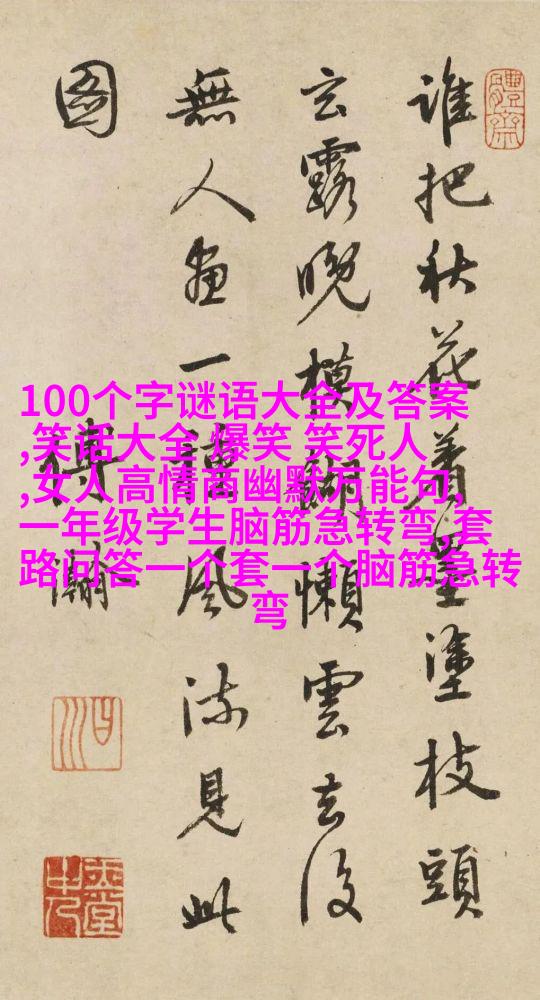 100个字谜语大全及答案
,笑话大全 爆笑 笑死人
,女人高情商幽默万能句,
一年级学生脑筋急转弯,套
路问答一个套一个脑筋急转
弯
誰把秋花着墨塗枝頭
玄露晚模糊懶雲去後
無人畫一風流見此
圖
傅瀚